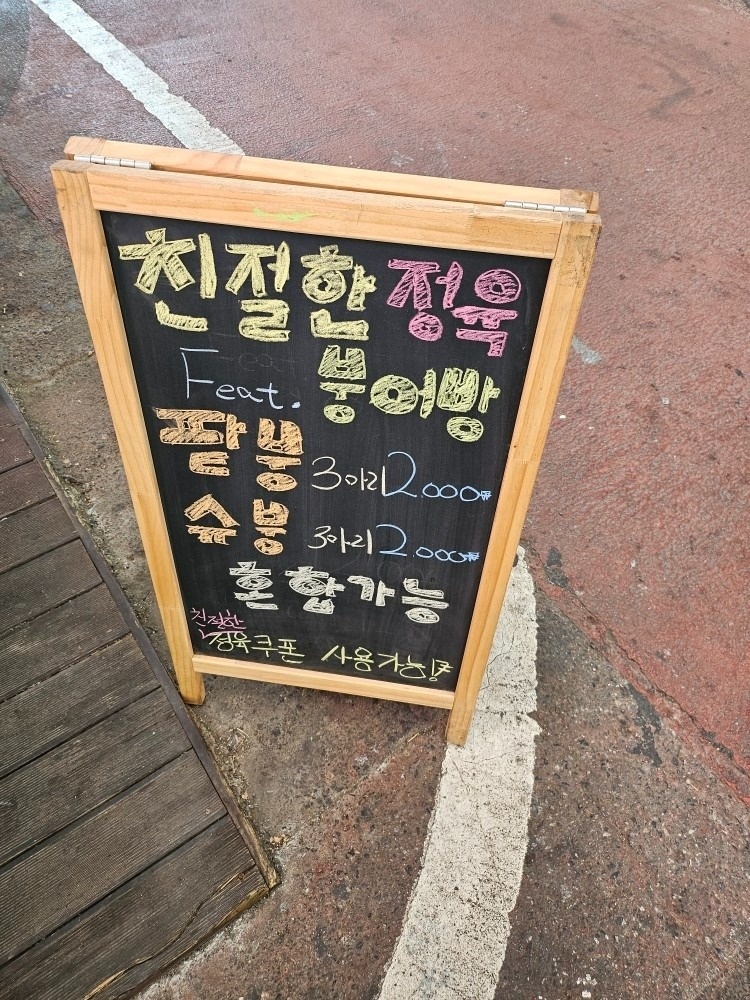 친절한 정육
Feat. 붕어빵
팥붕 3마리 2.000원
슈붕 3마리 2.000원
혼합가능
친절한
정육쿠폰 사용가능!